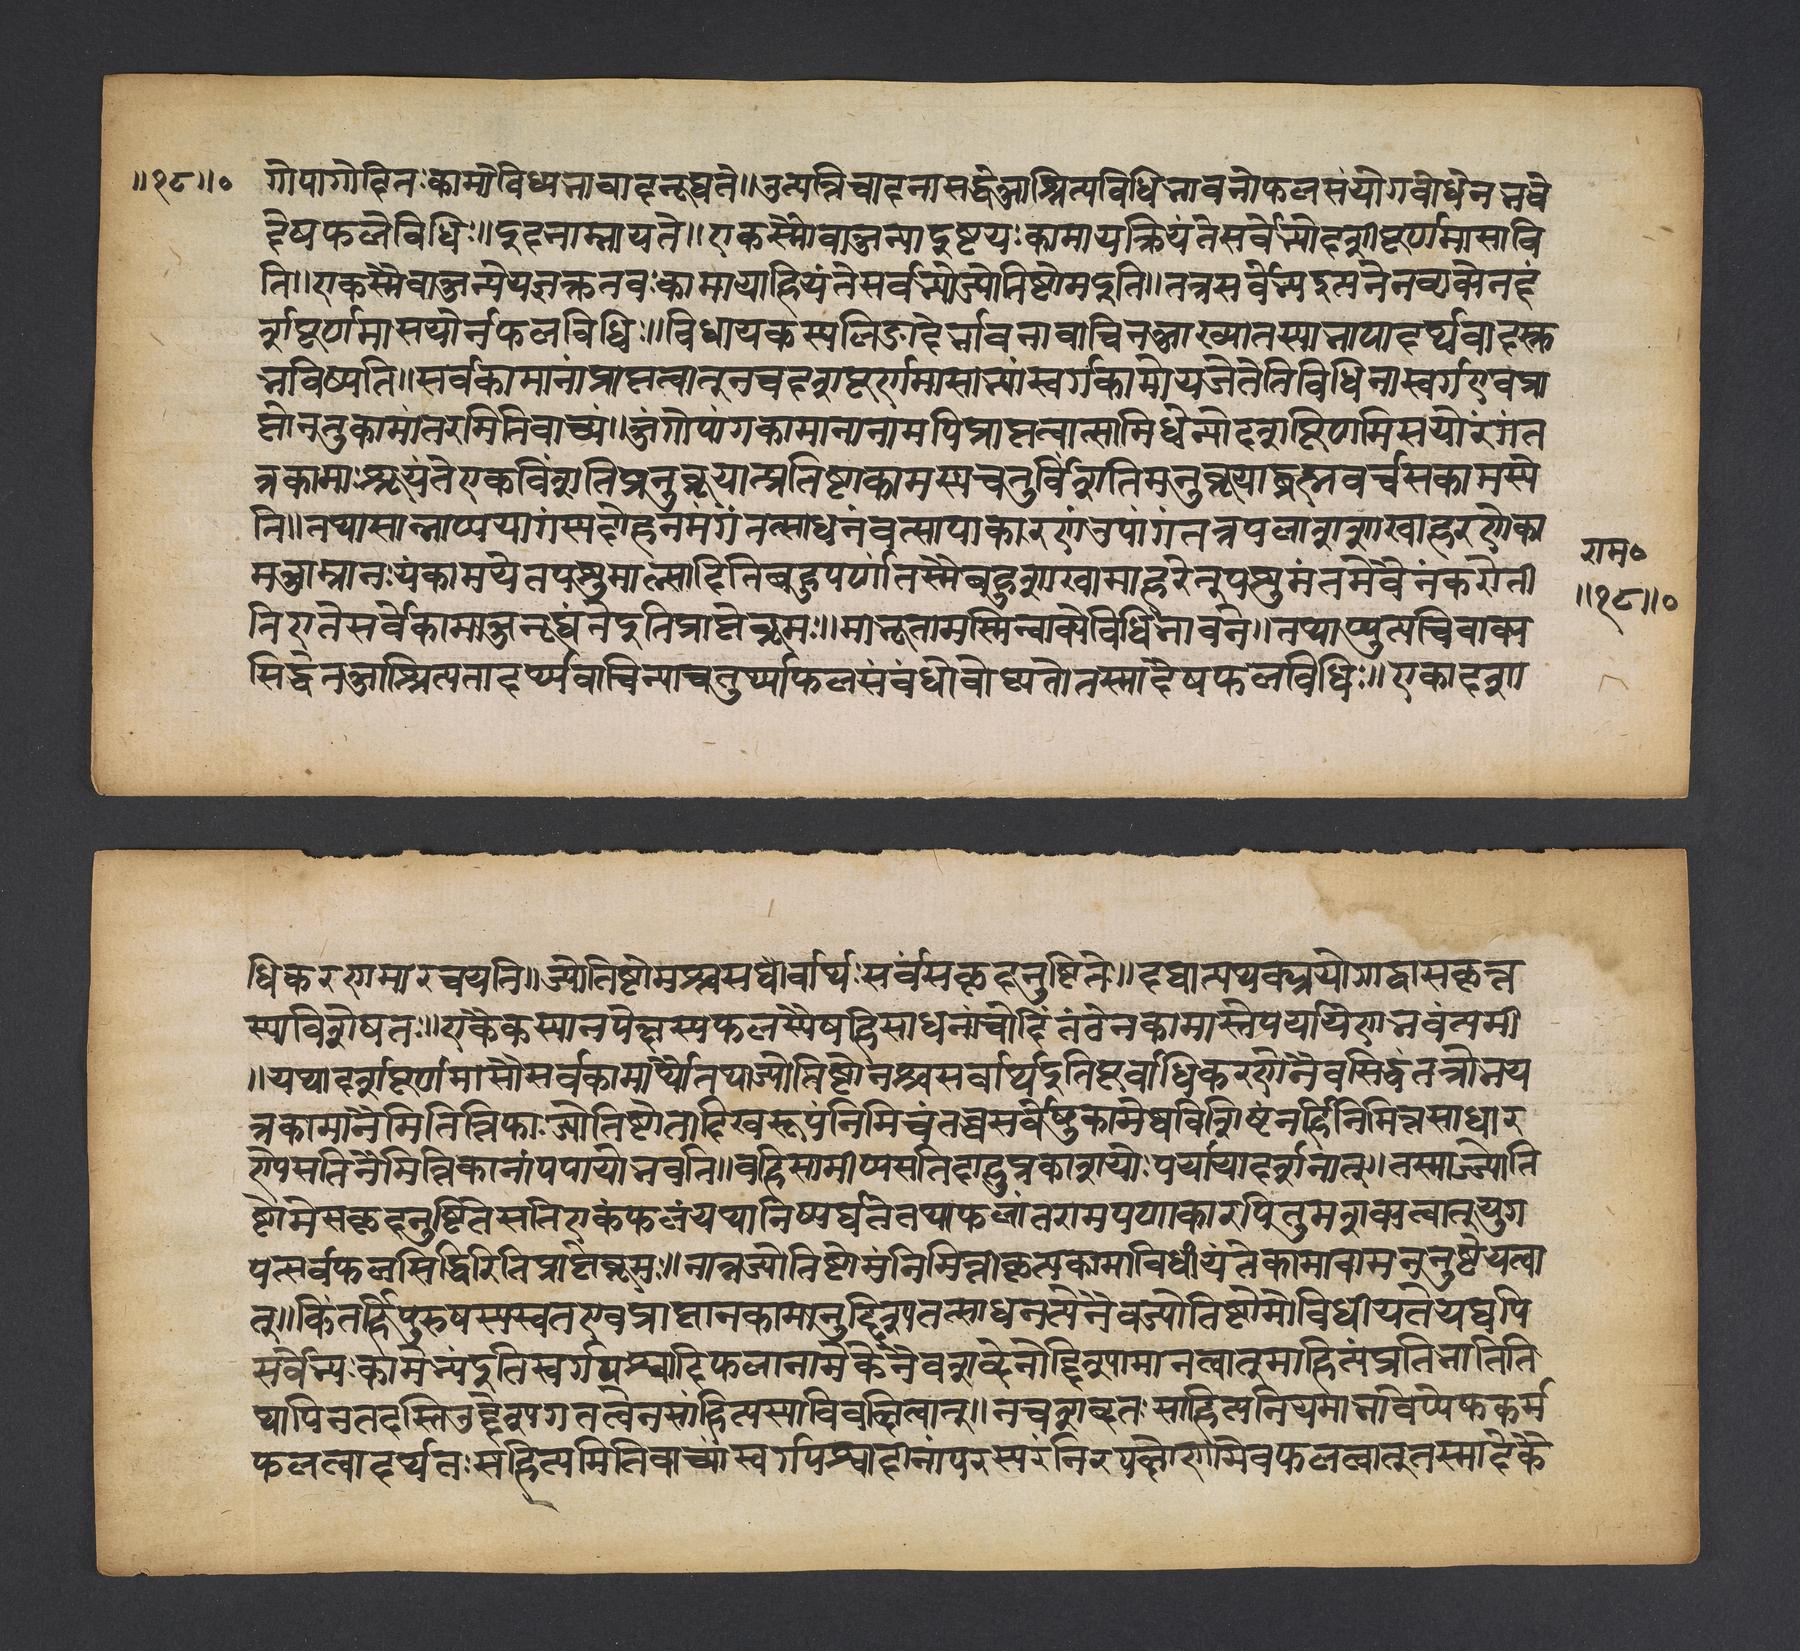 ॥१८॥०
गोपांगोदितःकामोविध्यभावादनूद्यते॥उत्पत्तिचोदनासिद्धंआश्रित्यविधिभावनोफलसंयोगबोधेनभवे
देषफलेविधिः॥इदमाम्नायते॥एकस्मैवाअन्याइष्टयःकामायक्रियंतेसर्वेभ्योदर्शपूर्णमासावि
ति॥एकस्मैवाअन्येयज्ञक्रतवःकामायाह्रियंतेसर्वेभ्योज्योतिष्टोमइति॥तत्रसर्वेभ्यइत्यनेनवाक्येनद
र्शपूर्णमासयोर्नफलविधिः॥विधायकस्यलिङादेर्भावनावाचिनआख्यातस्याभावादर्थवादस्त
द्भविष्यति॥सर्वकामानांप्राप्तत्वात्नचदर्शपूर्णमासाभ्यांस्वर्गकामोयजेतेतिविधिनास्वर्गएवप्रा
प्तोनतुकामांतरमितिवाच्यं॥अंगोपांगकामानामपिप्राप्तत्वात्सामिधेन्योदर्शपूर्णमासयोरंगंत
त्रकामाःश्रूयंतेएकविंशतिमनुब्रूयात्प्रतिष्ठाकामस्यचतुर्विंशतिमनुब्रूयाद्ब्रह्मवर्चसकामस्ये
ति॥तथासान्नाय्ययागस्यदोहनमंगंतत्साधनंवत्सापाकारणंउपांगंतत्रपलाशशाखाहरणेका
मआम्नातःयंकामयेतपशुमान्स्यादितिबहुपर्णांतस्मैबहुशाखामाहरेत्पशुमंतमेवैनंकरोती
तिएतेसर्वेकामाअनूद्यंतेइतिप्राप्तेब्रूमः॥माभूतामस्मिन्वाक्येविधिभावने॥तथाप्युत्पत्तिवाक्य
सिद्धेनआश्रित्यतादर्थ्यवाचिन्याचतुर्थ्याफलसंबंधोबोध्यतेतस्मादेषफलविधिः॥एकादशा
राम०
॥१८॥०
धिकरणमारचयति॥ज्योतिष्टोमश्चसर्वार्थःसर्वंसकृदनुष्ठिते॥दद्यात्पृथक्प्रयोगाद्वासकृत्त
स्याविशेषतः॥एकैकस्यानपेक्षस्यफलस्यैषहिसाधनंचोदितंतेनकामास्तेपर्यायेणभवंत्यमी
॥यथादर्शपूर्णमासौसर्वकामार्थौतथाज्योतिष्टोमश्चसर्वार्थइतिपूर्वाधिकरणेनैवसिद्धंतत्रोभय
त्रकामानैमित्तिकाःज्योतिष्टोमादिस्वरूपंनिमित्तंतच्चसर्वेषुकामेष्वविशिष्टंनहिनिमित्तसाधार
णेसतिनैमित्तिकानांपर्यायोभवति॥वह्निसामीप्येसतिदाहप्रकाशयोःपर्यायादर्शनात्॥तस्माज्ज्योति
ष्टोमेसकृदनुष्ठितेसतिएकंफलंयथानिष्पद्यतेतथाफलांतराणामपाकारयितुमशक्यत्वात्युग
पत्सर्वफलसिद्धिरितिप्राप्तेब्रूमः॥नात्रज्योतिष्टोमंनिमित्तीकृत्यकामाविधीयंतेकामानामननुष्ठेयत्वा
त्॥किंतर्हिपुरुषस्यस्वतएवप्राप्तान्कामानुद्दिश्यतत्साधनत्वेनैवज्योतिष्टोमोविधीयतेयद्यपि
सर्वेभ्यःकामेभ्यइतिस्वर्गपश्वादिफलानामेकेनैवशब्देनोद्दिश्यमानत्वात्साहित्यंप्रतिभातिति
थापिनतदस्तिउद्देशगतत्वेनसाहित्यस्याविवक्षितत्वात्॥नचशब्दतःसाहित्यनियमाभावेप्येककर्म
फलत्वादर्थतःसहित्यमितिवाच्यंस्वर्गपश्वादीनांपरस्परंनिरपेक्षाणामेवफलत्वात्तस्मादेकै